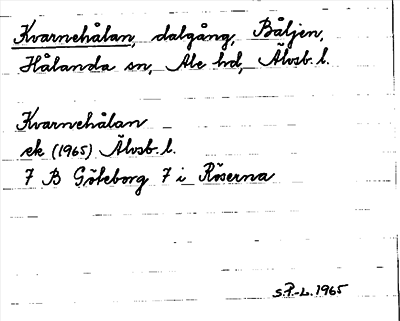 Kvarnehålan, dalgång, Båljen,
Hålanda sn, Ale hd, Älvsb. l.
Kvarnehålan
ek (1965) Älvsb. l.
7 B Göteborg 7 i Röserna
S.P.-L. 1965